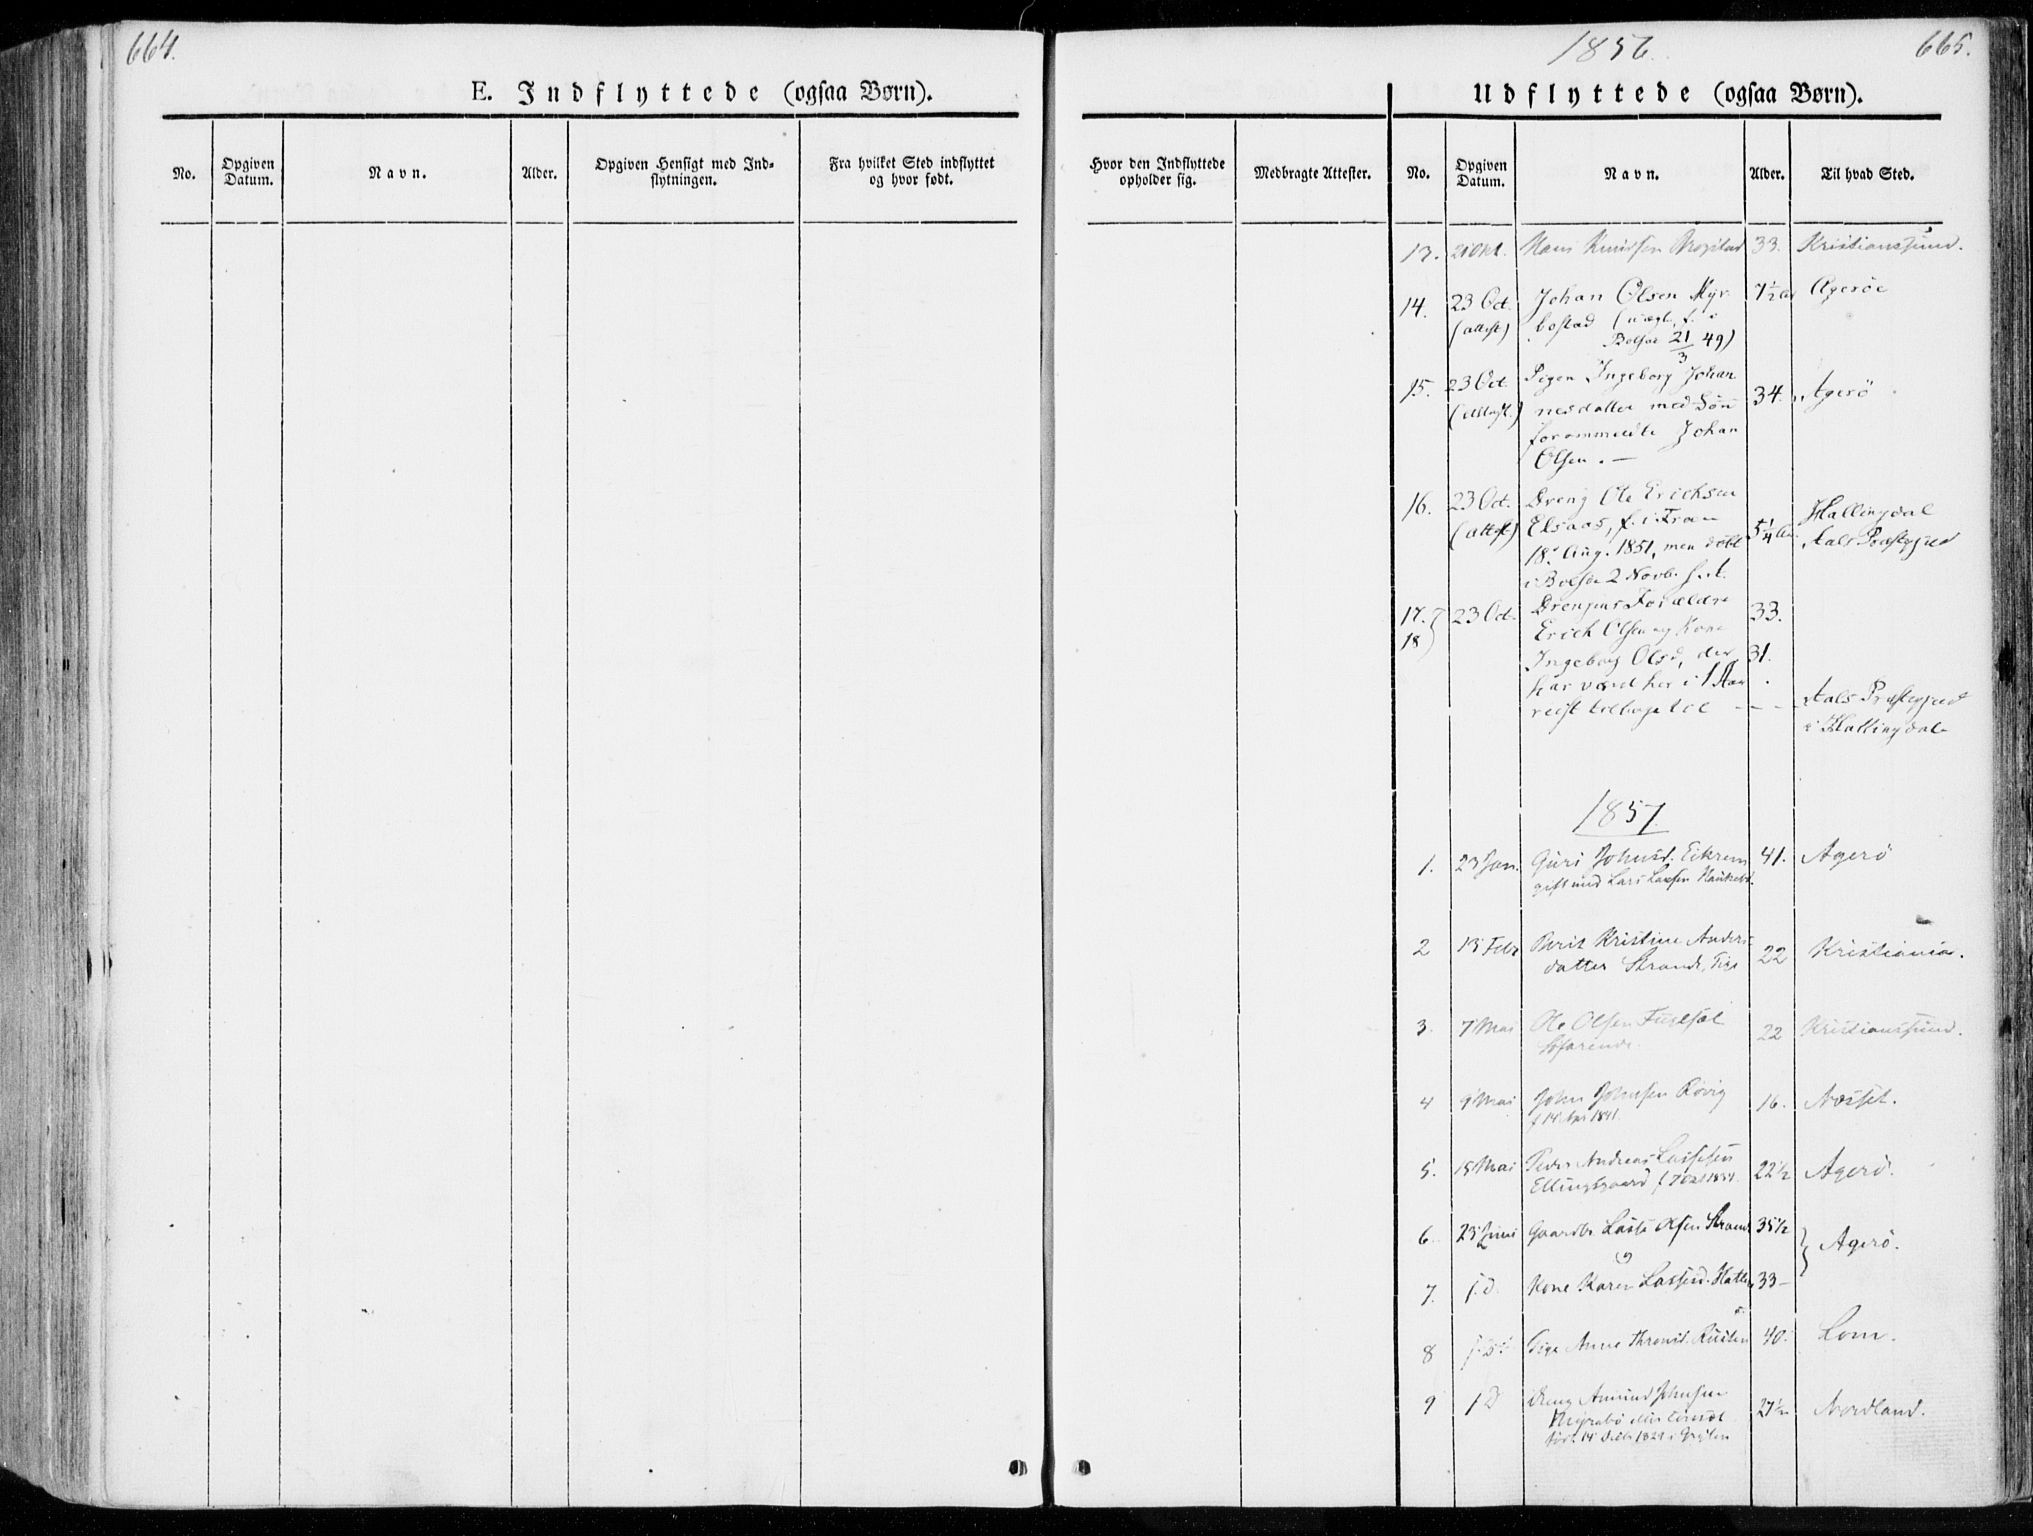 664.
E. Indflyttede (ogsaa Børn).
No.
Opgiven Datum.
Navn.
Alder.
Opgiven Hensigt med Indflytningen.
Fra hvilket Sted indflyttet og hvor født.
1856.
665.
Udflyttede (ogsaa Børn).
Hvor den Indflyttede opholder sig.
Medbragte Attester.
No.
Opgiven Datum.
Navn.
Alder.
Til hvad Sted.
13. 21 Okt. Hans Knudsen 33. Kristianssund.
14. 23 Oct. Johan Olsen Myr 7½ Aar Agerøe
(attest) bostad (uægt. f. i
Bolsøe 21/3 49)
15. 23 Oct. Pigen Ingeborg Johan
(attest.) nesdatter med Sön 34. Agerö
forommeldte Johan
Olsen. —
16. 23 Oct. Dreng Ole Erichsen
(attest) Elsaas, f. i Fræn 5¼ Aar Hallingdal
18. Aug. 1851, men döbt Aals Præstegjeld
i Bolsøe 2 Novb. s. A.
17. 23 Oct. Drengens Forældre 33.
18 Erich Olsen og Kone
Ingeborg Olsd, der 31.
har været her i 1 Aar
reist tilbage til - - - Aals Præstegjeld
i Hallingdal
1857.
1. 23 Jan. Guri Johnsd. Eikrem 41. Agerö
gift med Lars Larsen Haukebö.
2 13 Febr Berit Kristine Anders
datter Strande, Pige 22 Kristiania.
3. 7 Mai Ole Olsen Fuglset 22 Kristianssund.
4 9 Mai John Johnsen Rövig 16. Næsset.
f 14 Apr 1841.
5. 15 Mai Peder Andreas Lassesen 22½ Agerö.
Ellingsgaard f 7 Oct 1834.
6. 23 Juni Gaardbr Lasse Olsen Strande 35½ Agerö.
og
7. s. D. Kone Karen Lassesd. Hatle 33–
8 s. D. Pige Anne Thronsd. Rusten 40. Lom.
9 s D Dreng Amund Johnsen
Myrabö 27½ Nordland.
född. 14 Decbr 1829 i